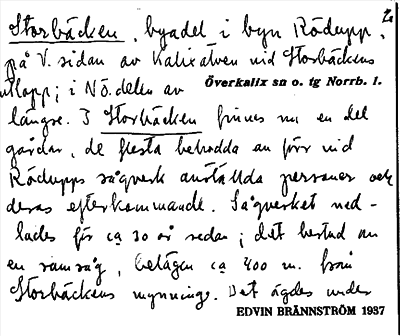 Storbäcken, byadel i byn Rödupp, 2
på V. sidan av Kalixälven vid Storbäckens
utlopp; i NÖ. delen av
Överkalix sn o. tg Norrb. l.
längre. I Storbäcken finnes nu en del
gårdar, de flesta bebodda av förr vid
Rödupps sågverk anställda personer och
deras efterkommande. Sågverket ned-
lades för ca 30 år sedan; det bestod av
en ramsåg, belägen ca 400 m. från
Storbäckens mynning. Det ägdes under
EDVIN BRÄNNSTRÖM 1937